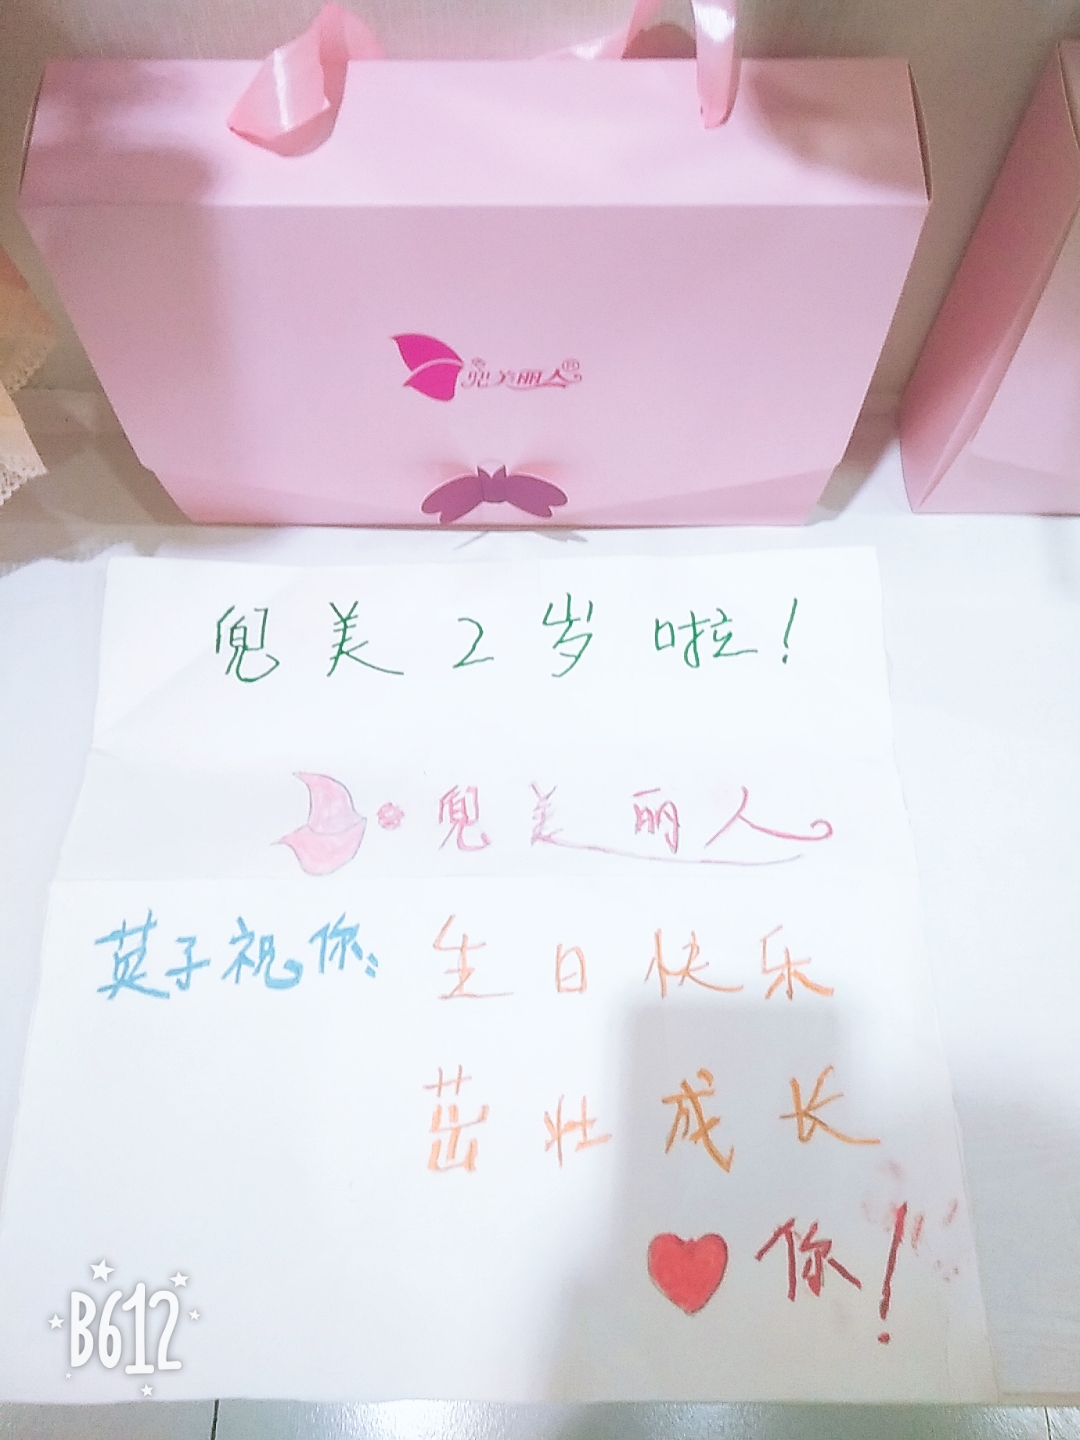 兜美丽人®
兜美2岁啦!
兜美丽人
英子祝你: 生日快乐
茁壮成长
你!
B612